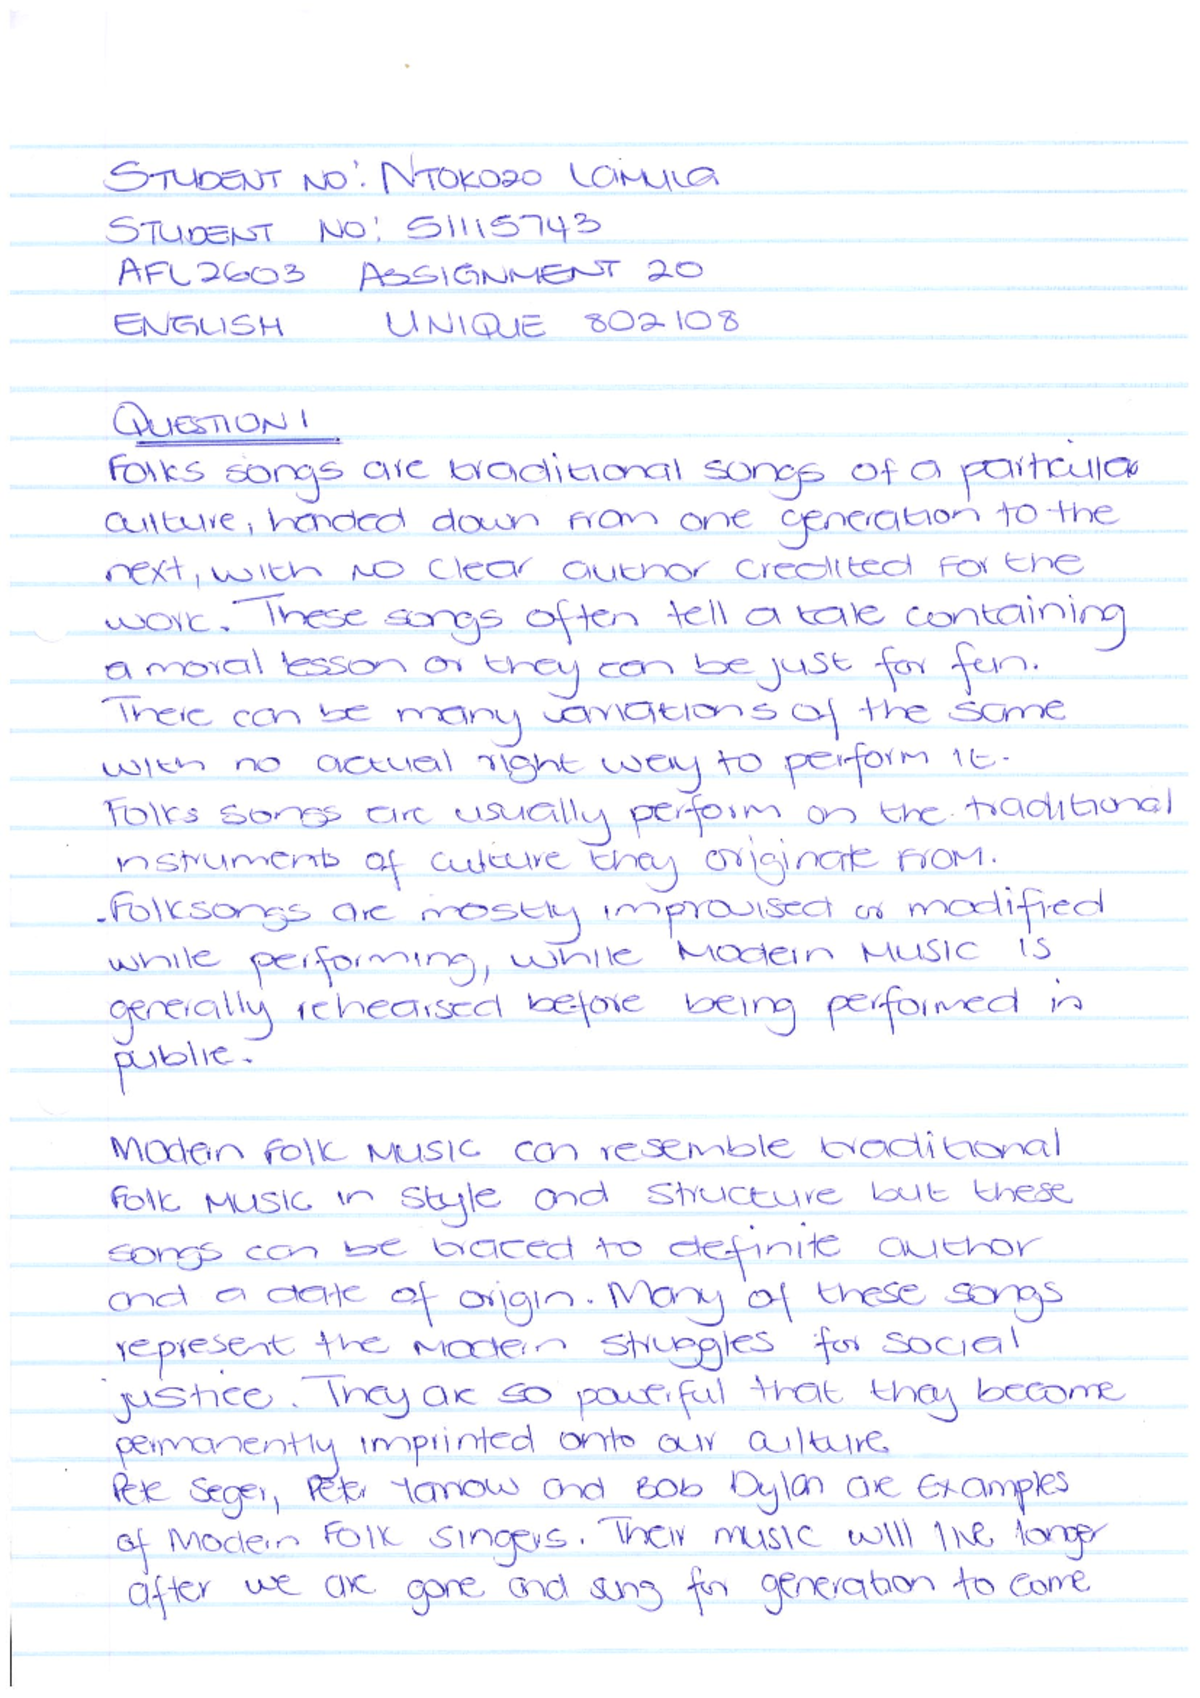 STUDENT NO: NTOKOZO Lamula
STUDENT NO: 51115743
AFL2603 ASSIGNMENT 20
ENGLISH UNIQUE 802108
QUESTION 1
Folks songs are traditional songs of a particular
culture, handed down from one generation to the
next, with no clear author credited for the
work. These songs often tell a tale containing
a moral lesson or they can be just for fun.
There can be many variations of the same
with no actual right way to perform it.
Folks songs are usually perform on the traditional
instruments of culture they originate from.
.Folksongs are mostly improvised or modified
while performing, while Modern Music is
generally rehearsed before being performed in
public.
Modern Folk Music can resemble traditional
Folk Music in style and structure but these
songs can be traced to definite author
and a date of origin. Many of these songs
represent the Modern struggles for social
justice. They are so powerful that they become
permanently imprinted onto our culture
Pete Seger, Peter Yarrow and Bob Dylan are Examples
of Modern Folk singers. Their music will live longer
after we are gone and sung for generation to come